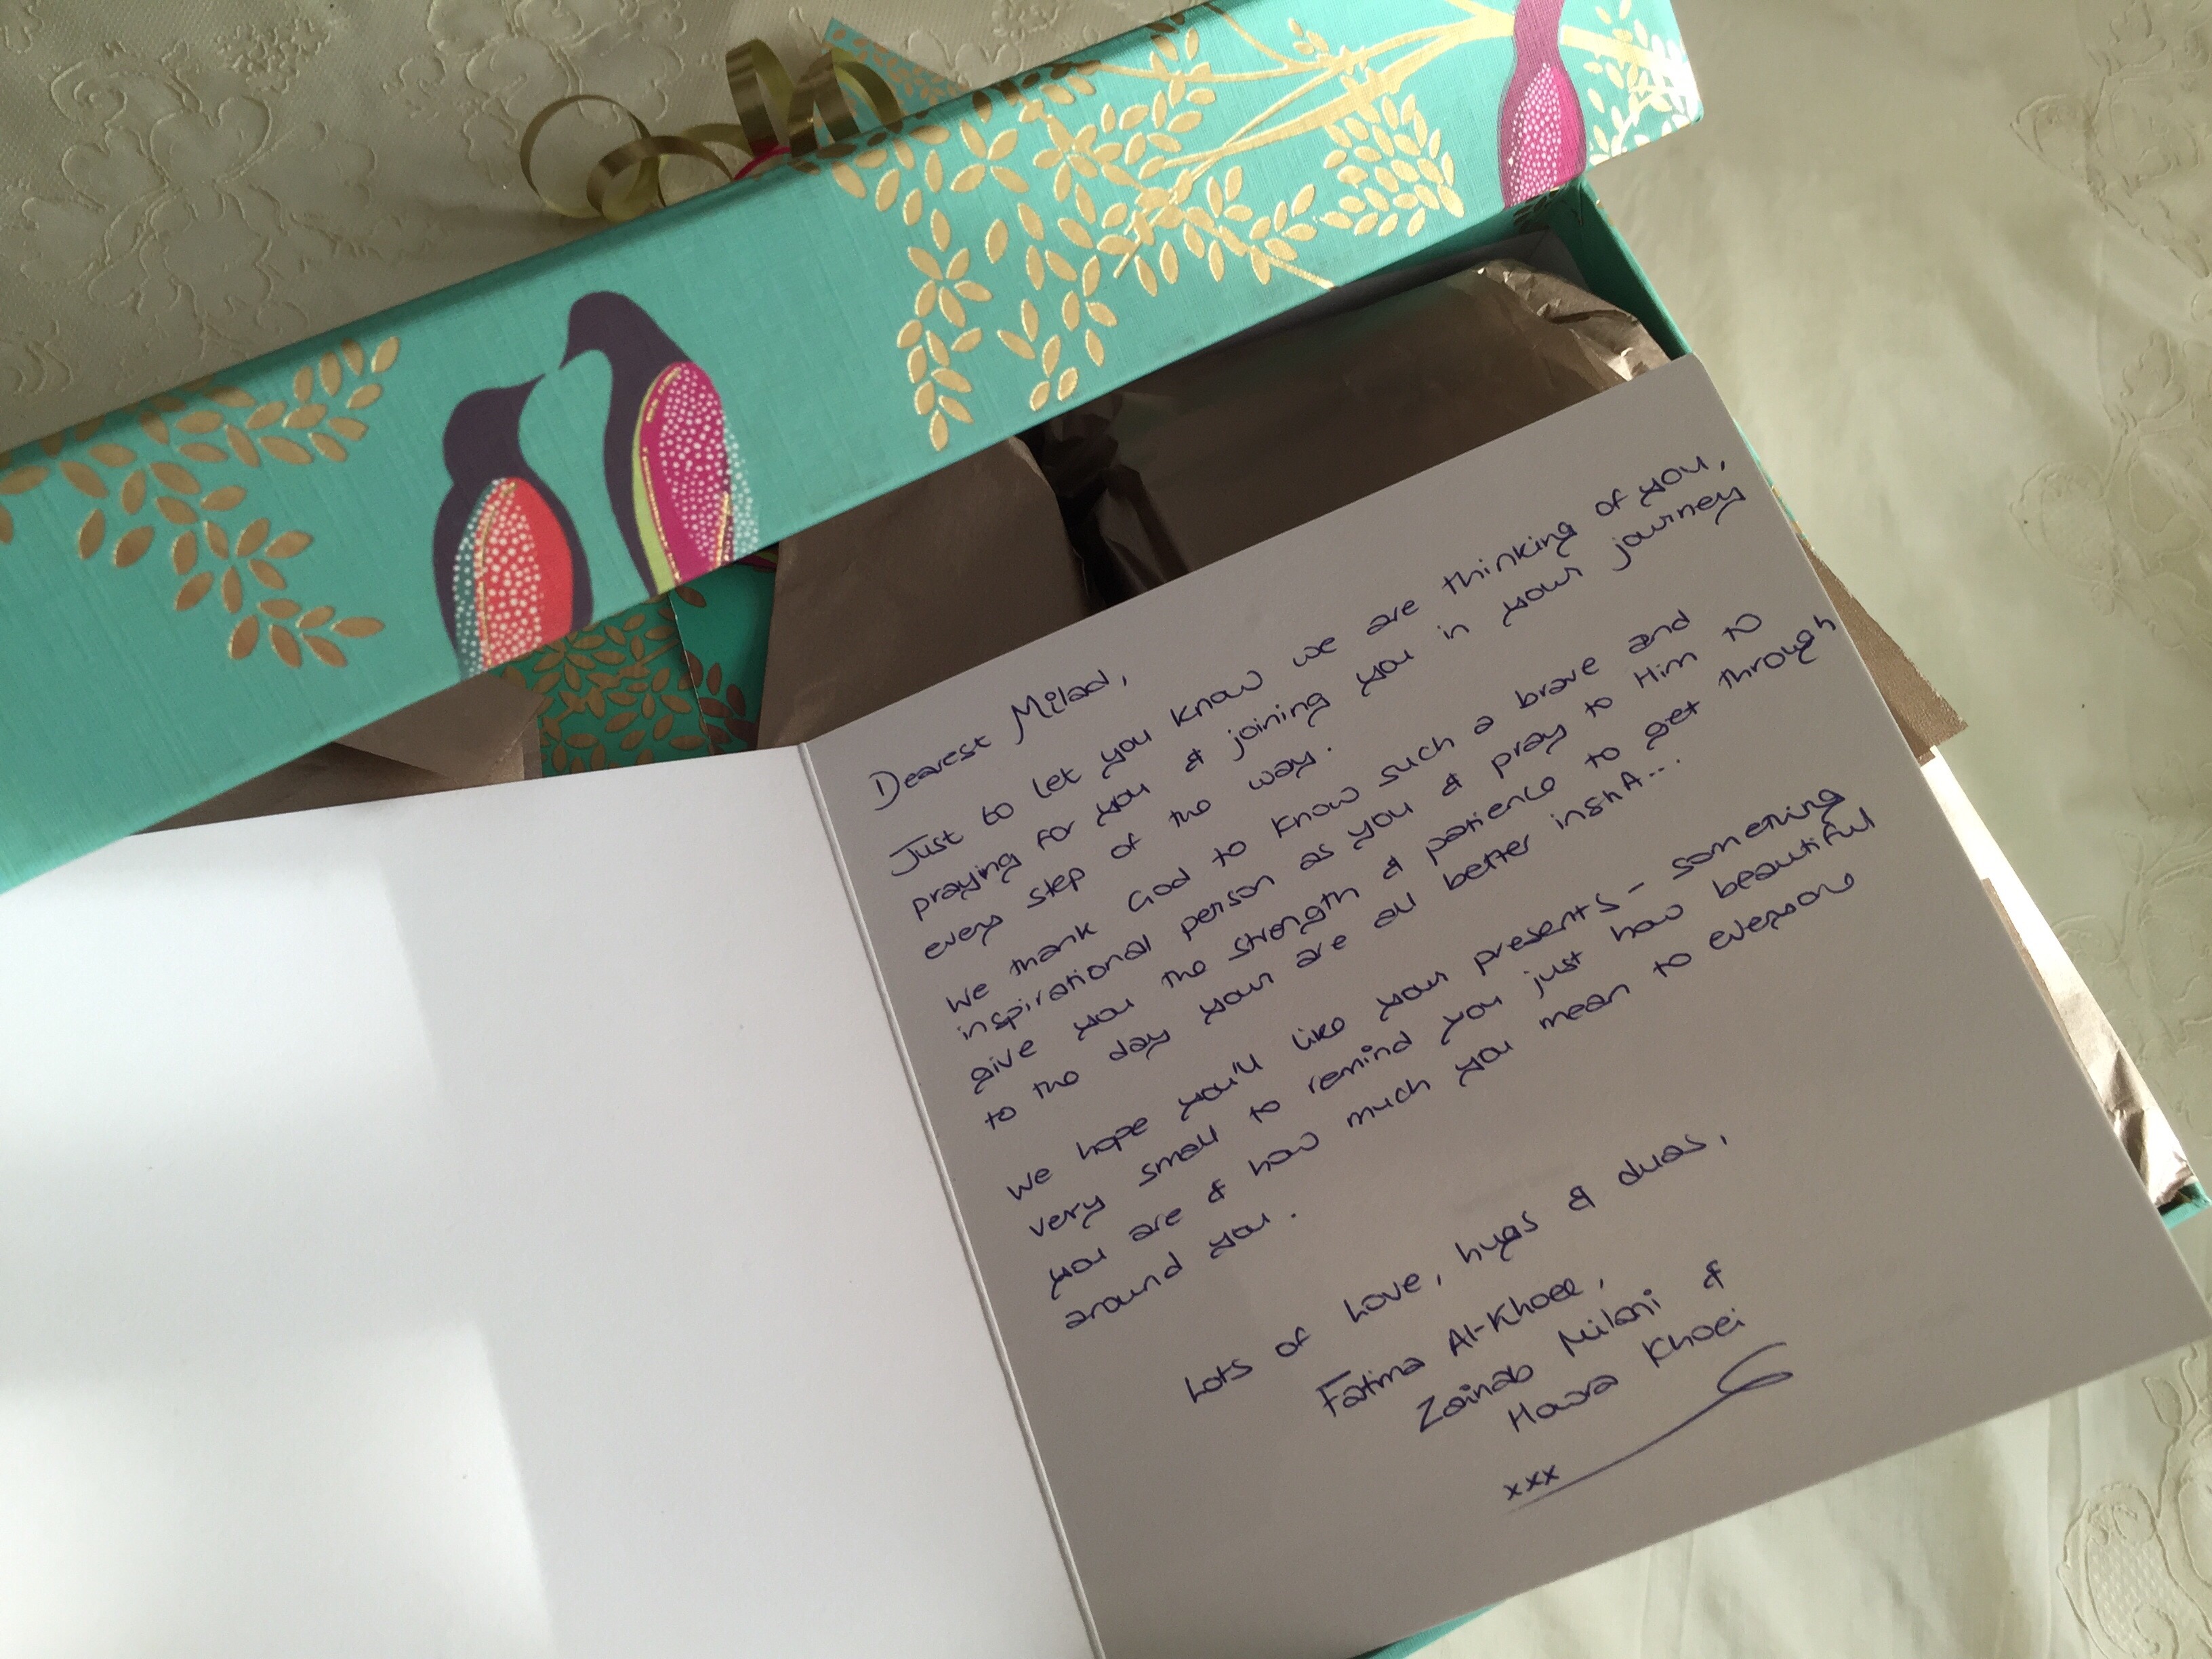 Dearest Milad,
Just to let you know we are thinking of you,
praying for you & joining you in your journey
every step of the way.
We thank God to know such a brave and
inspirational person as you & pray to Him to
give you the strength & patience to get through
to the day your are all better inshA...
We hope you'll like your presents - something
very small to remind you just how beautiful
you are & how much you mean to everyone
around you.
Lots of love, hugs & duas,
Fatima Al-Khoee,
Zainab Milani &
Hawra Khoei
xxx